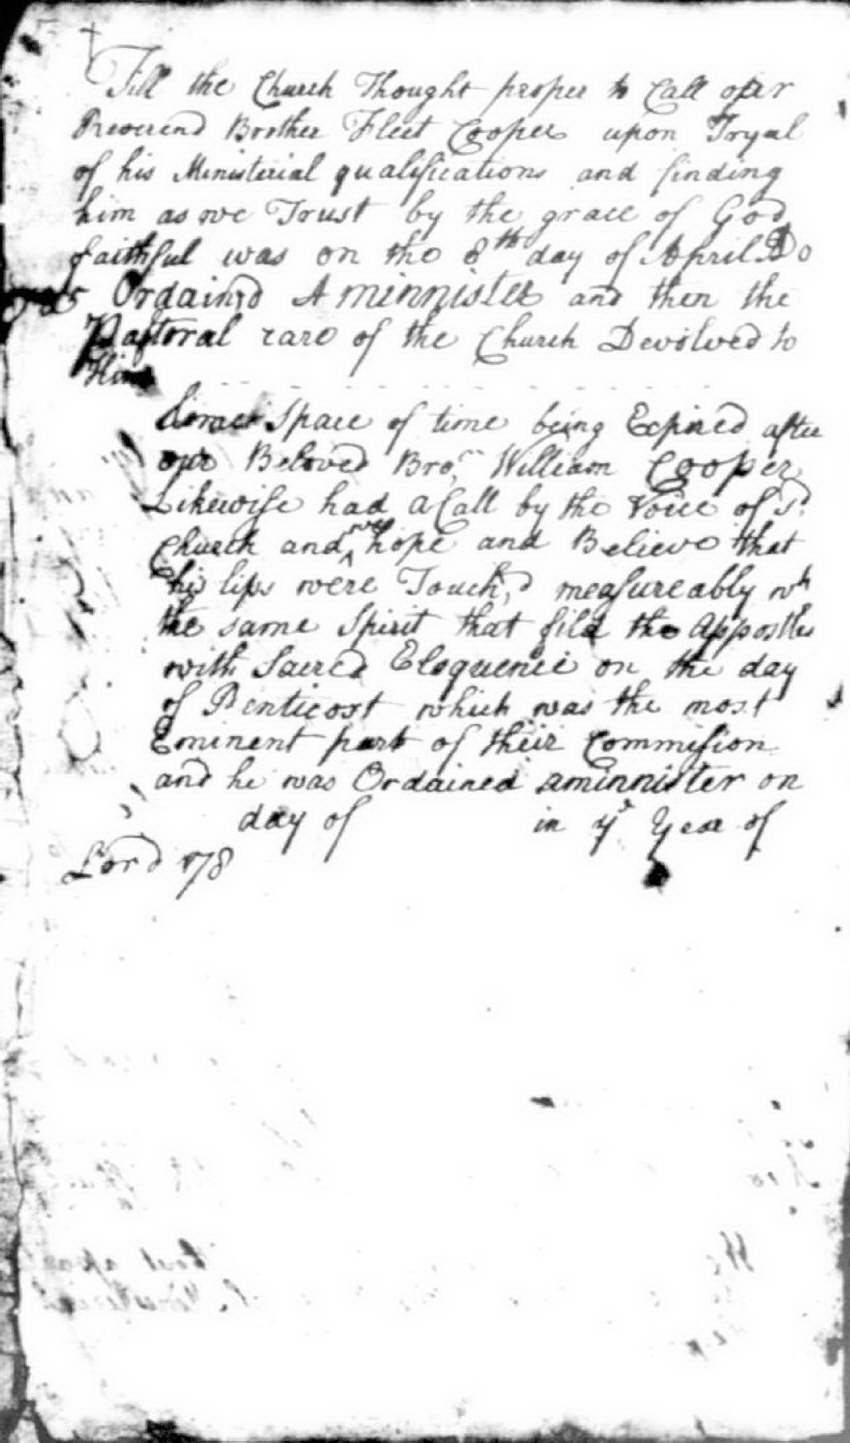 Till the Church Thought proper to Call our
Reverend Brother Fleet Cooper upon Tryal
of his Ministerial qualifications and finding
him as we Trust by the grace of God
faithful was on the 8th day of April Do
Ordain,d A minnister and then the
Pastoral care of the Church Devolved to
Him
Space of time being Expired after
our Beloved Bror William Cooper
Likewise had a Call by the Voice of sd
Church and ^we hope and Believe that
his lips were Touch,d measureably wh
the same Spirit that fild the Appostles
with Sacred Eloquence on the day
of Penticost which was the most
Eminent part of their Commision
and he was Ordained aminnister on
day of in ye Year of
Lord 178